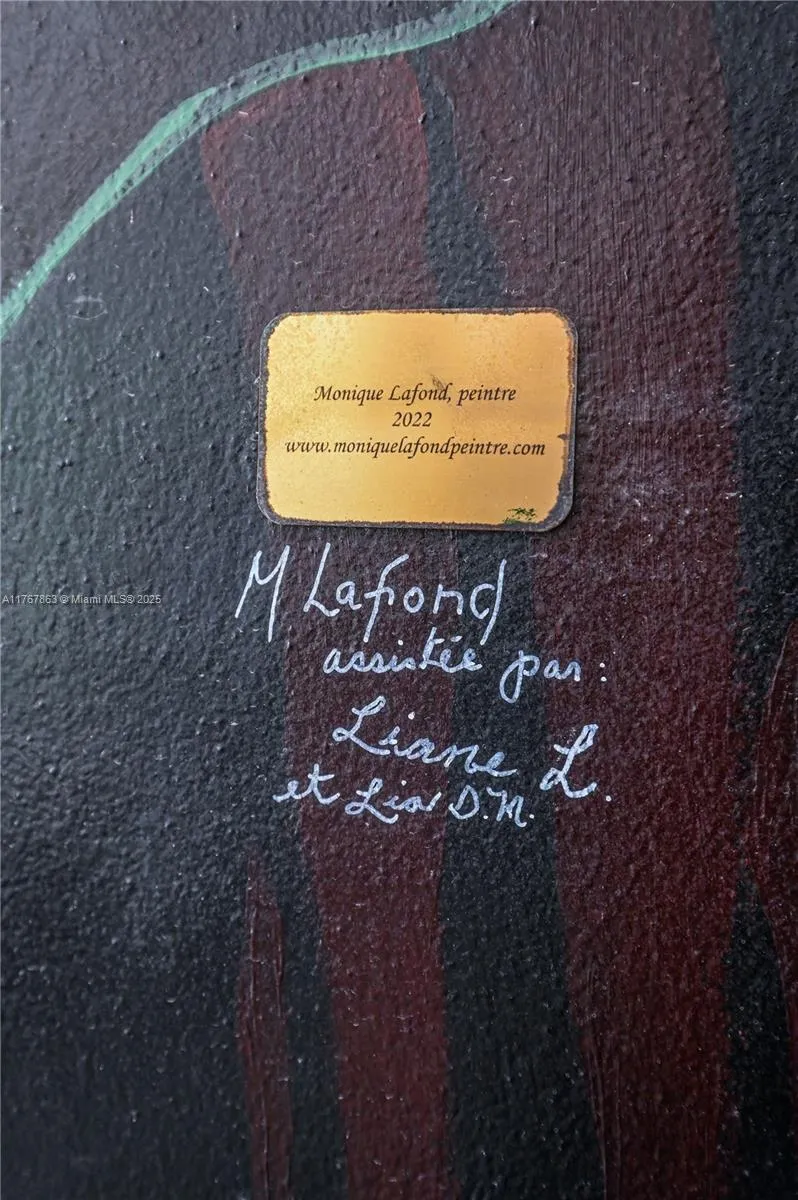 Monique Lafond, peintre
2022
www.moniquelafondpeintre.com
M Lafond
A11767863 © Miami MLS® 2025
assistée par:
Liane L.
et Lia D.M.